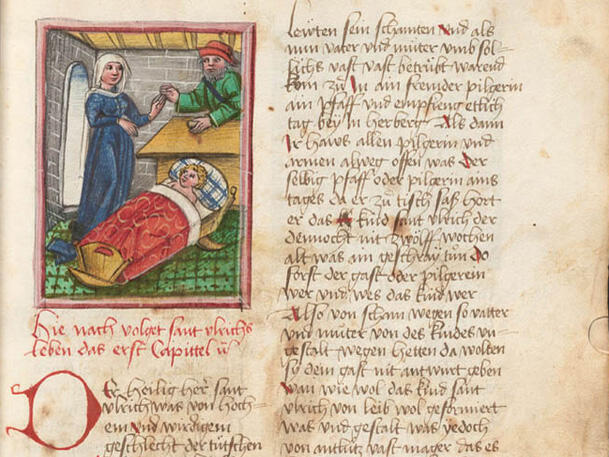 Hie nach volget sant vlrichs
leben das erst Capittel
DEr heilig her sant
vlrich was von hoch=
em vnd wirdigem
geschlecht der tütschen
Lewten sein schamten Vnd als
nun vater vnd müter vmb sol=
lichs vast vast betrübt warend
kom zů In ain fremder pilgerin
ain pfaff vnd empfieng etlich
tag bey In herberg Als dann
Ir haws allen pilgerin vnd
armen alweg offen was Der
selbig pfaff oder pilgerin ains
tages da er zů tisch saß hort
er das kind sant vlrich der
dennocht nit zwölff wochen
alt was ain geschray tůn do
forst der gast oder pilgerein
wer vnd wes das kind wer
Also von scham wegen so vatter
vnd müter von des kindes vn=
gestalt wegen hetten da wolten
so dem gast nit antwurt geben
wan wie wol das kind sant
vlrich von leib wol geformiert
was vnd gestalt was yedoch
von antlütz vast mager das es